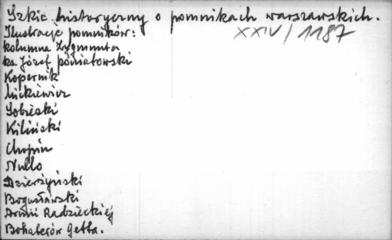 Szkic historyczny o pomnikach warszawskich.
XXIV/1187
Ilustracje pomników:
kolumna Zygmunta
ks Józef Poniatowski
Kopernik
Mickiewicz
Sobieski
Kiliński
Chopin
Nullo
Dzierżyński
Bogusławski
Armii Radzieckiej
Bohaterów Getta.